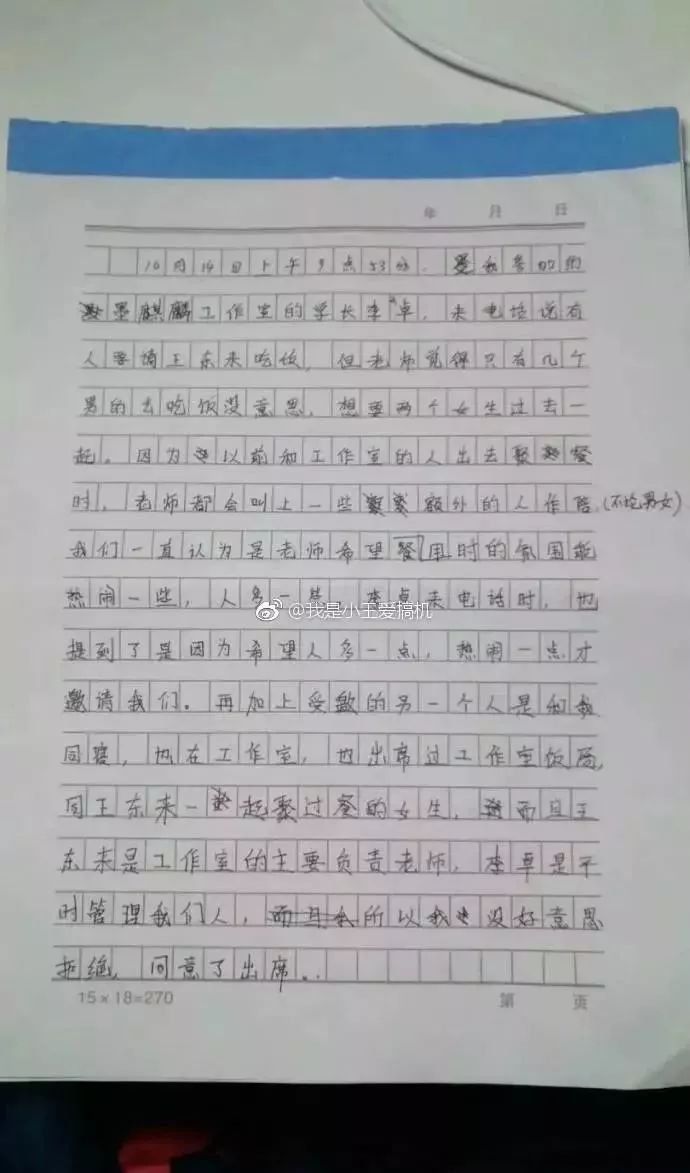 年 月 日
10月14日上午9点53分，我参加的
墨麒麟工作室的学长李卓，来电话说有
人要请王东来吃饭，但老师觉得只有几个
男的去吃饭没意思，想要两个女生过去一
起。因为以前和工作室的人出去聚餐
时，老师都会叫上一些额外的人作陪，(不论男女)
我们一直认为是老师希望餐用时的氛围能
热闹一些，人多一些。李卓来电话时，也
@我是小王爱搞机
提到了是因为希望人多一点，热闹一点才
邀请我们。再加上受邀的另一个人是和我
同寝，也在工作室，也出席过工作室饭局，
同王东来一起聚过餐的女生，而且王
东来是工作室的主要负责老师，李卓是平
时管理我们人，所以我没好意思
拒绝，同意了出席。
15×18=270 第 页